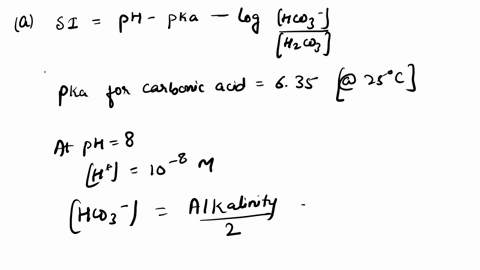 (a) SI = pH - pKa - log [HCO3^-] / [H2CO3]
pKa for carbonic acid = 6.35 [@ 25°C]
At pH = 8
[H^+] = 10^-8 M
[HCO3^-] = Alkalinity / 2